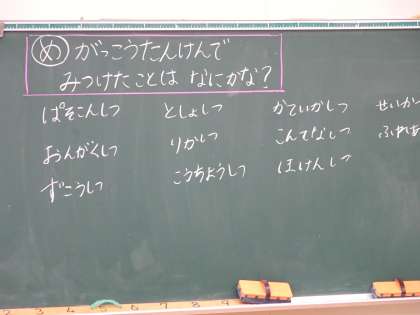 め がっこうたんけんで
みつけたことは なにかな?
ぱそこんしつ
おんがくしつ
ずこうしつ
としょしつ
りかしつ
こうちょうしつ
かていかしつ
こんてなしつ
ほけんしつ
せいか